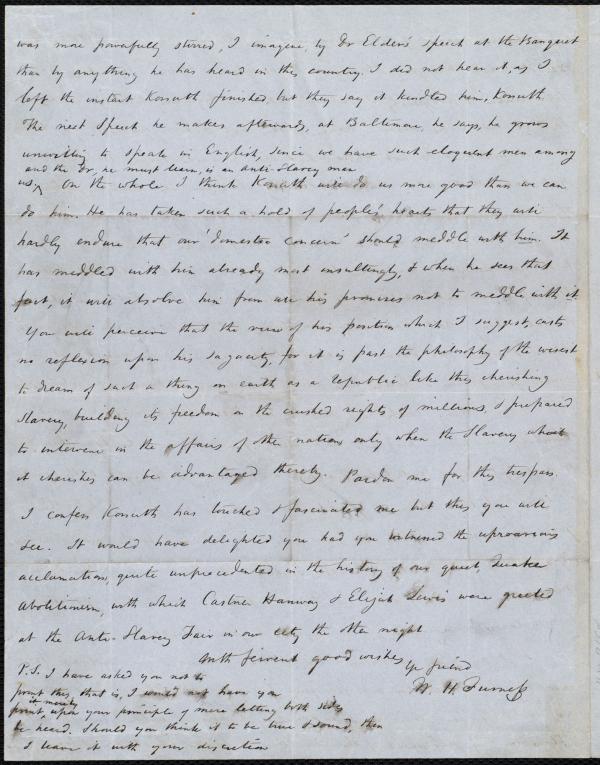 was more powerfully stirred, I imagine, by Dr Elder's speech at the Banquet
than by anything he has heard in this country. I did not hear it, as I
left the instant Kossuth finished, but they say it kindled him, Kossuth.
The next speech he makes afterwards, at Baltimore, he says, he grows
unwilling to speak in English, since we have such eloquent men among
and the Dr, he must learn, is an anti-Slavery man
us. ^ On the whole I think Kossuth will do us more good than we can
do him. He has taken such a hold of people's hearts that they will
hardly endure that our 'domestic concern' should meddle with him. It
has meddled with him already most insultingly, & when he sees that
fact, it will absolve him from all his promises not to meddle with it.
You will perceive that the view of his position which I suggest, casts
no reflexion upon his sagacity, for it is past the philosophy of the wisest
to dream of such a thing on earth as a republic like this cherishing
Slavery, building its freedom on the crushed rights of millions, & prepared
to intervene in the affairs of other nations only when the Slavery which
it cherishes can be advantaged thereby. Pardon me for this trespass.
I confess Kossuth has touched & fascinated me but this you will
see. It would have delighted you had you witnessed the uproarious
acclamation, quite unprecedented in the history of our quiet, Quaker
abolitionism, with which Castner Hanway & Elijah Lewis were greeted
at the Anti-Slavery Fair in our city the other night
With fervent good wishes
Yr friend
W. H. Furness
P.S. I have asked you not to
print this, that is, I would not have you
it merely
print, ^ upon your principle of mere letting both sides
be heard. Should you think it to be true & sound, then
I leave it with your discretion